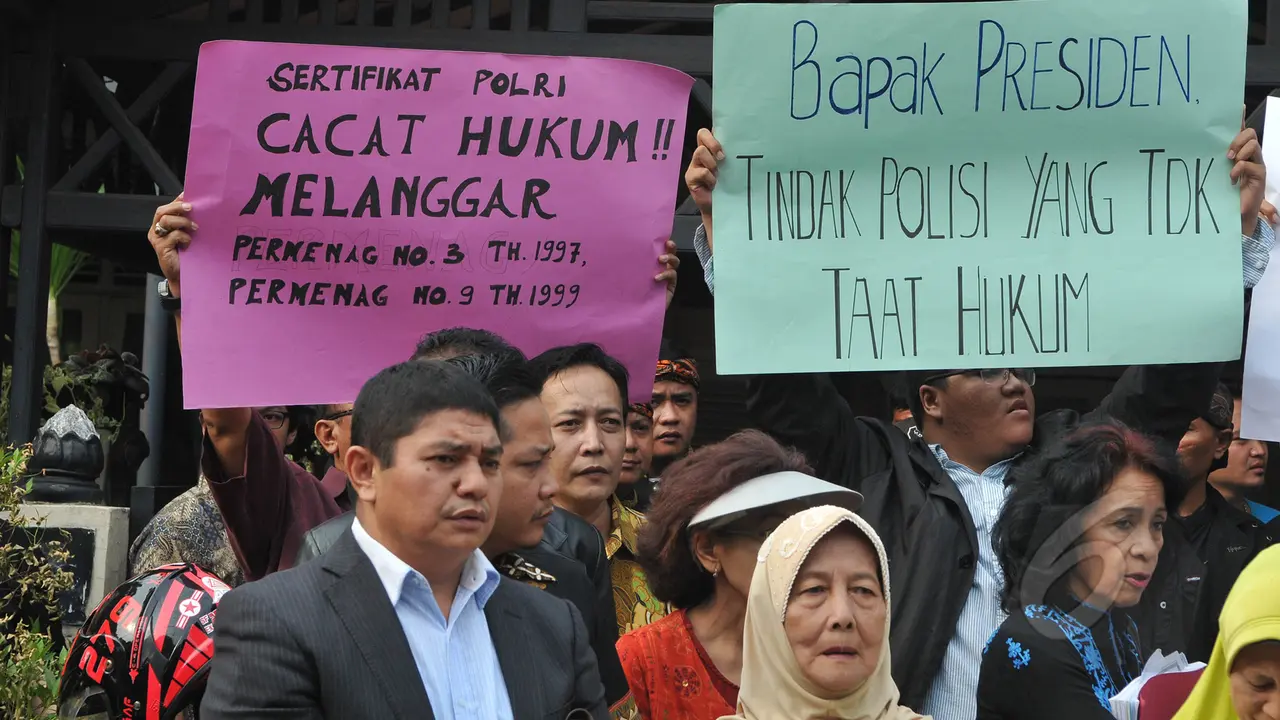 SERTIFIKAT POLRI
CACAT HUKUM !!
MELANGGAR
PERMENAG NO. 3 TH. 1997,
PERMENAG NO. 9 TH. 1999
Bapak PRESIDEN,
TINDAK POLISI YANG TDK
TAAT HUKUM